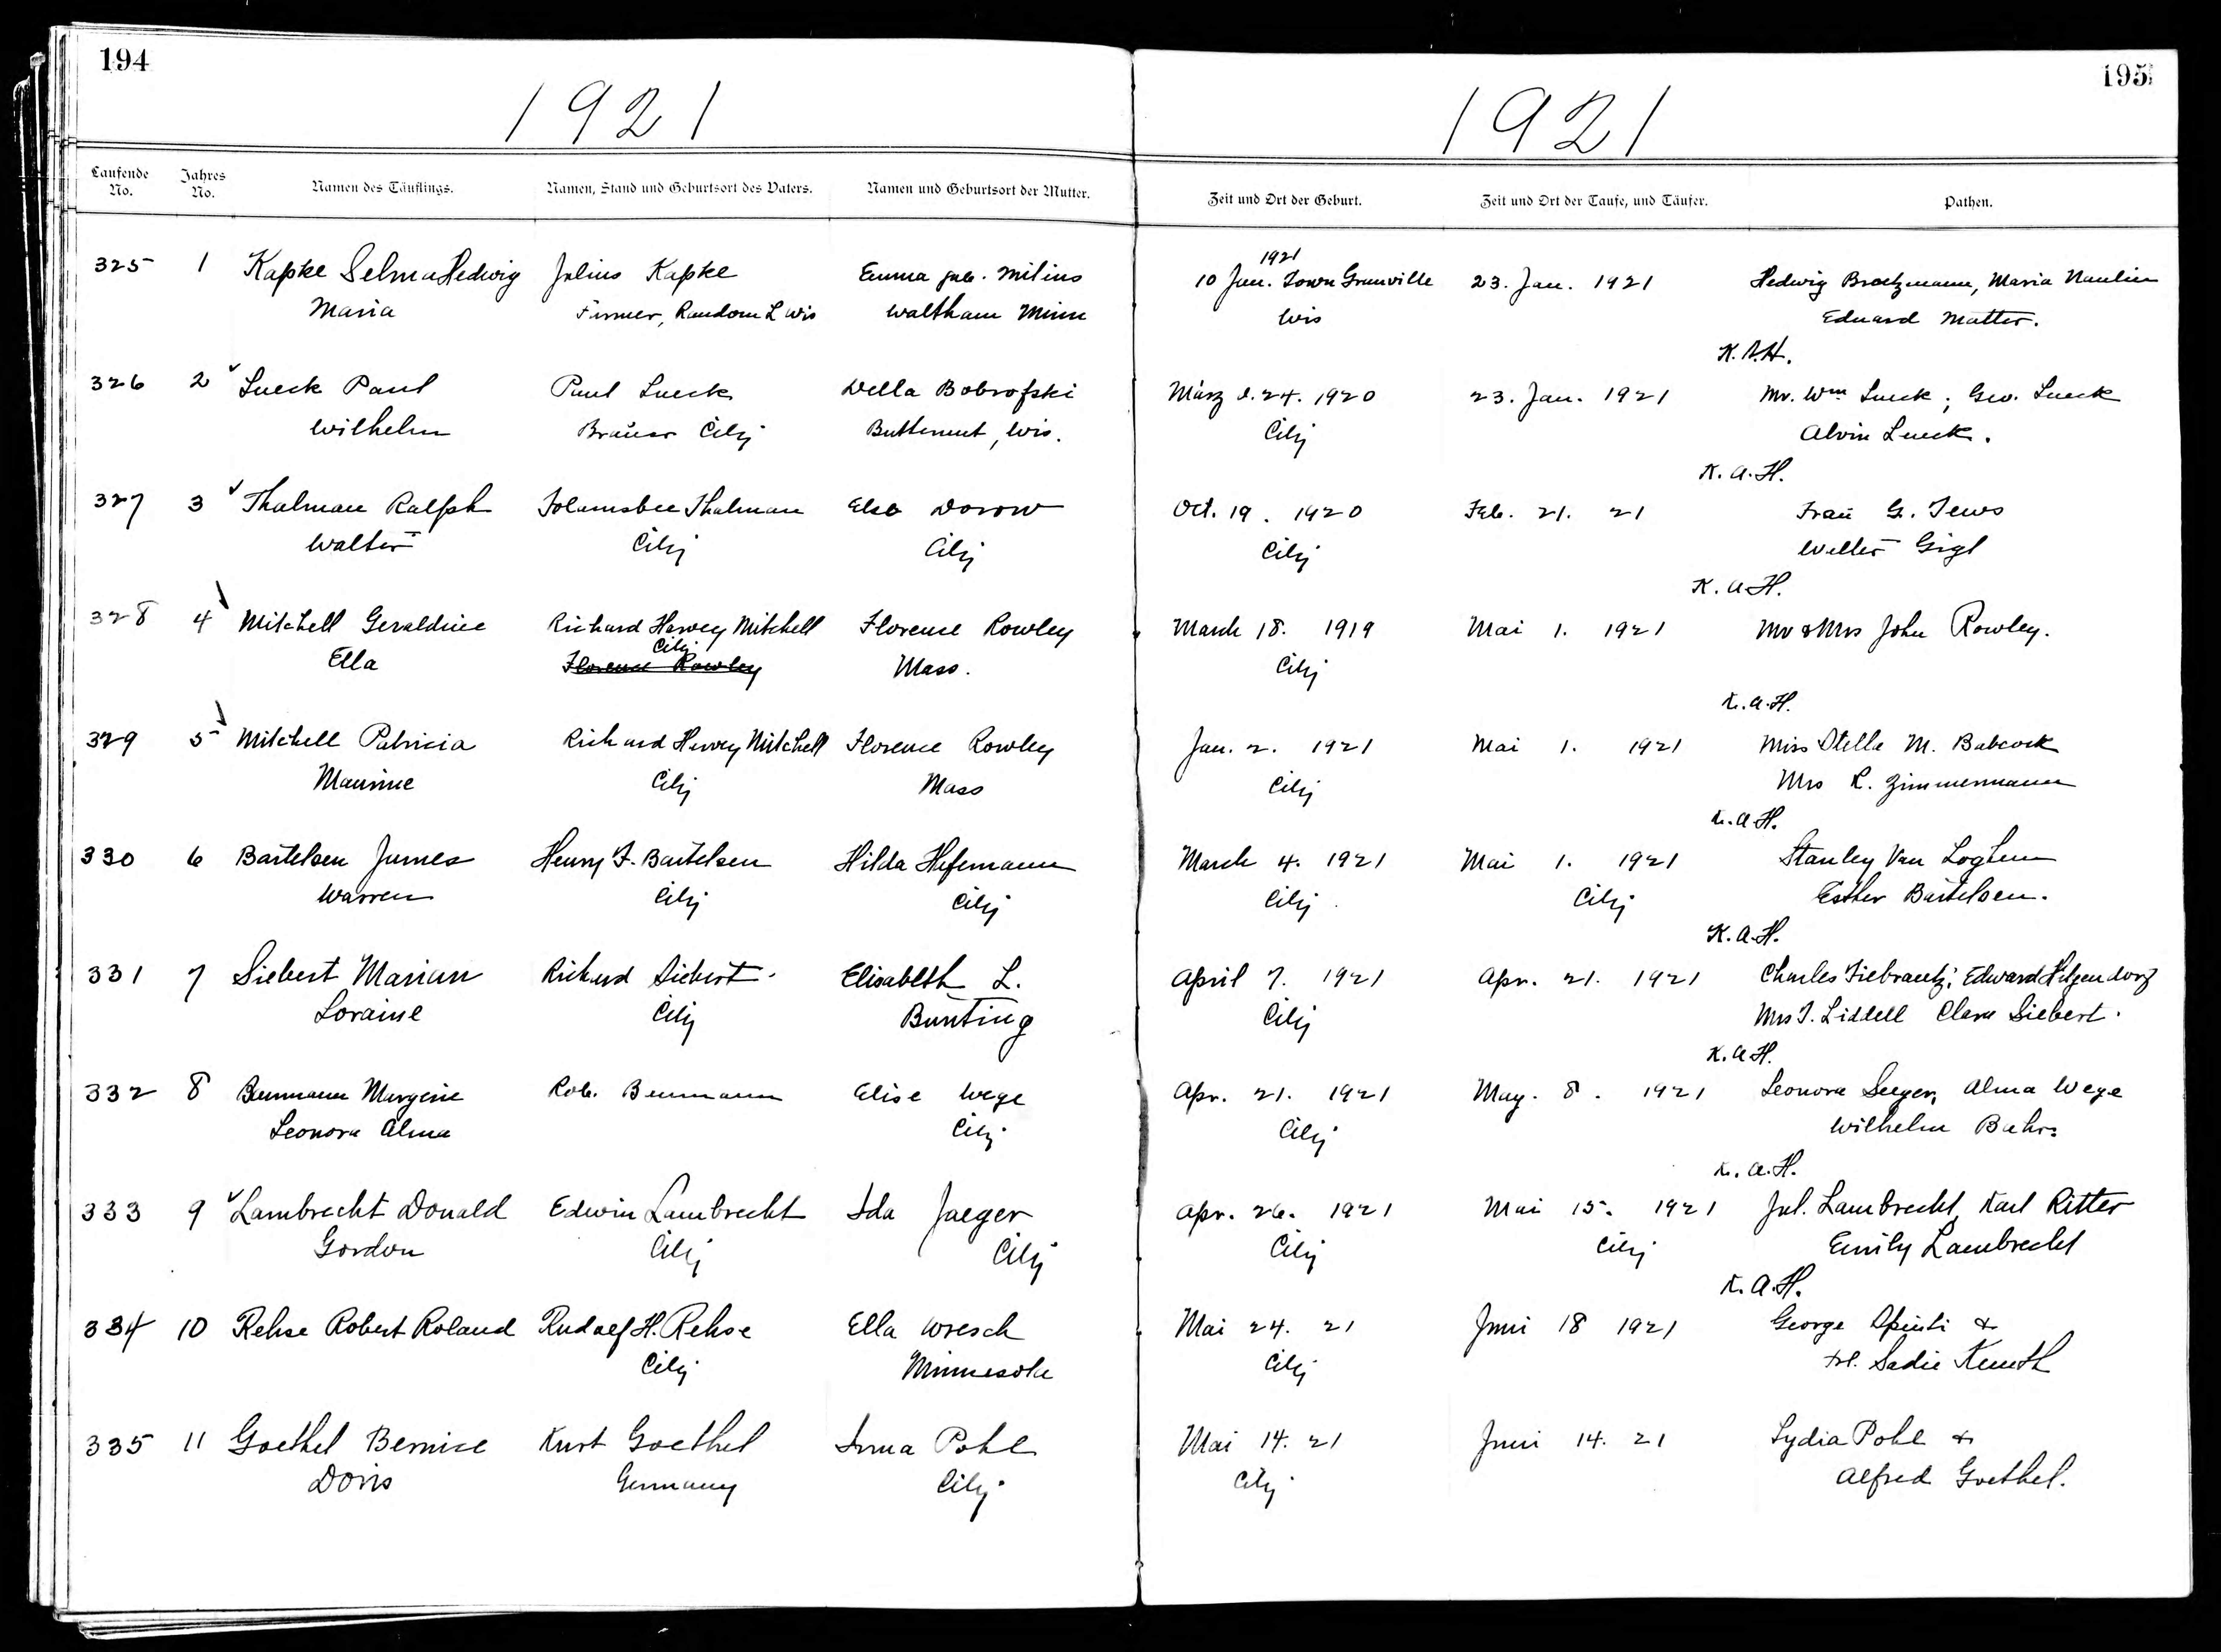 194
1921
Laufende No. Jahres No. Namen des Täuflings. Namen, Stand und Geburtsort des Vaters. Namen und Geburtsort der Mutter.
325 1 Kapke Selma Hedwig Julius Kapke Emma geb. Milius
Maria Farmer, Random L Wis Waltham Minn
326 2 Lueck Paul Paul Lueck Della Bobrofski
Wilhelm Brauer City Butternut, Wis.
327 3 Thalman Ralph Folamsbee Thalman Else Dorow
Walter City City
328 4 Mitchell Geraldine Richard Harvey Mitchell Florence Rowley
City
Ella Florence Rowley Mass.
329 5 Mitchell Patricia Richard Harvey Mitchell Florence Rowley
Maurine City Mass
330 6 Bartelsen James Henry F. Bartelsen Hilda
Warren City City
331 7 Siebert Marian Richard Siebert. Elisabeth L.
Loraine City Bunting
332 8 Margerie Rob. Elise Wege
Leonora Alma City
333 9 Lambrecht Donald Edwin Lambrecht Ida Jaeger
Gordon City City
334 10 Rehse Robert Roland Rudolf H. Rehse Ella Wresch
City Minnesota
335 11 Goethel Bernice Kurt Goethel Irma Pohl
Doris Germany City
195
1921
Zeit und Ort der Geburt. Zeit und Ort der Taufe, und Täufer. Pathen.
1921
10 Jan. Town Granville 23. Jan. 1921 Hedwig Maria
Wis Eduard Matter.
K.A.H.
März d. 24. 1920 23. Jan. 1921 Mr. Wm Lueck; Geo. Lueck
City Alvin Lueck.
K.A.H.
Oct. 19. 1920 Feb. 21. 21 Frau G. Tews
City Walter Gigl
K.A.H.
March 18. 1919 Mai 1. 1921 Mr & Mrs John Rowley.
City
K.A.H.
Jan. 2. 1921 Mai 1. 1921 Miss Stella M. Babcock
City Mrs R. Zimmermann
K.A.H.
March 4. 1921 Mai 1. 1921 Stanley Van
City. City Esther Bartelsen.
K.A.H.
April 7. 1921 Apr. 21. 1921 Charles Fiebrantz; Edward Hilgendorf
City Mrs J. Liddell Clara Siebert.
K.A.H.
Apr. 21. 1921 May. 8. 1921 Leonora Seeger, Alma Wege
City Wilhelm Bahr.
K.A.H.
Apr. 26. 1921 Mai 15. 1921 Jul. Lambrecht, Karl Ritter
City City Emily Lambrecht
K.A.H.
Mai 24. 21 Juni 18 1921 George &
City Frl. Sadie
Mai 14. 21 Juni 14. 21 Lydia Pohl &
City Alfred Goethel.